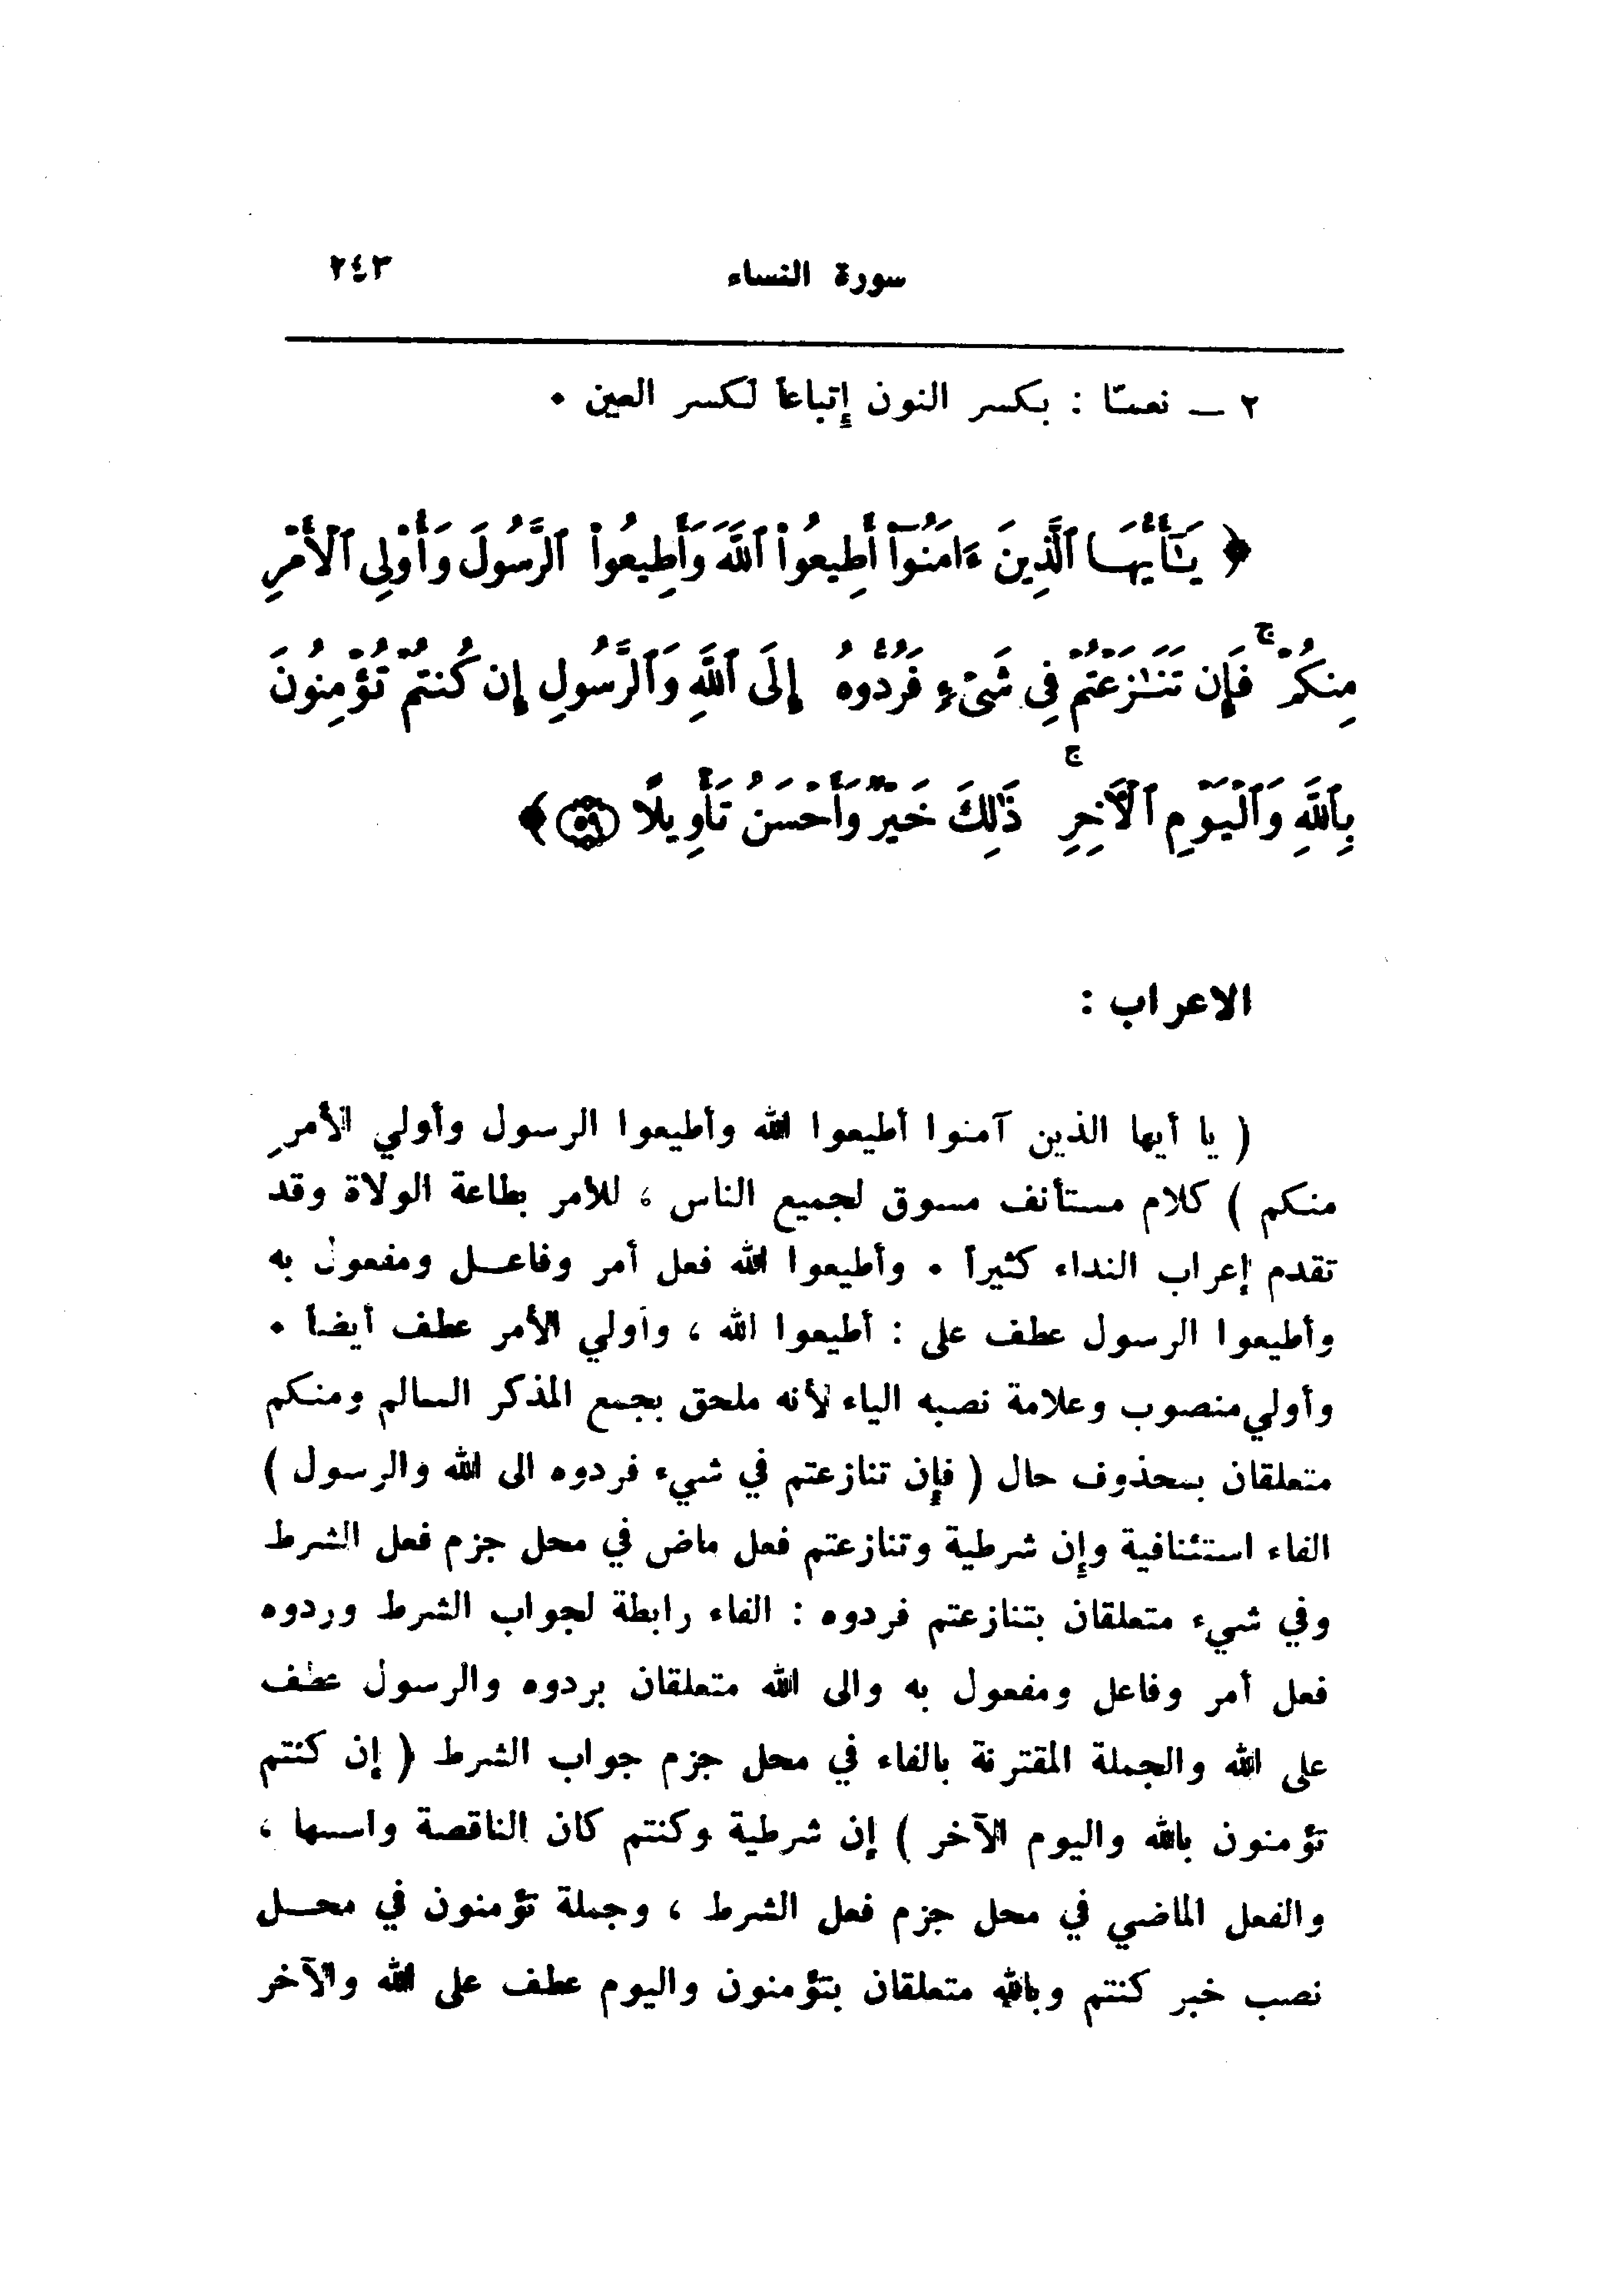 سورة النساء ٢٤٣
٢ — نعمّا : بكسر النون إتباعاً لكسر العين ٠
﴿ يَـٰٓأَيُّهَا ٱلَّذِينَ ءَامَنُوٓا۟ أَطِيعُوا۟ ٱللَّهَ وَأَطِيعُوا۟ ٱلرَّسُولَ وَأُو۟لِى ٱلْأَمْرِ
مِنكُمْ ۖ فَإِن تَنَـٰزَعْتُمْ فِى شَىْءٍ فَرُدُّوهُ إِلَى ٱللَّهِ وَٱلرَّسُولِ إِن كُنتُمْ تُؤْمِنُونَ
بِٱللَّهِ وَٱلْيَوْمِ ٱلْـَٔاخِرِ ۚ ذَٰلِكَ خَيْرٌ وَأَحْسَنُ تَأْوِيلًا ٥٩ ﴾
الاعراب :
( يا أيها الذين آمنوا أطيعوا الله وأطيعوا الرسول وأولي الأمر
منكم ) كلام مستأنف مسوق لجميع الناس ، للأمر بطاعة الولاة وقد
تقدم إعراب النداء كثيراً ٠ وأطيعوا الله فعل أمر وفاعل ومفعول به
وأطيعوا الرسول عطف على : أطيعوا الله ، وأولي الأمر عطف أيضاً ٠
وأولي منصوب وعلامة نصبه الياء لأنه ملحق بجمع المذكر السالم ومنكم
متعلقان بمحذوف حال ( فإن تنازعتم في شيء فردوه الى الله والرسول )
الفاء استئنافية وإن شرطية وتنازعتم فعل ماض في محل جزم فعل الشرط
وفي شيء متعلقان بتنازعتم فردوه : الفاء رابطة لجواب الشرط وردوه
فعل أمر وفاعل ومفعول به والى الله متعلقان بردوه والرسول عطف
على الله والجملة المقترنة بالفاء في محل جزم جواب الشرط ( إن كنتم
تؤمنون بالله واليوم الآخر ) إن شرطية وكنتم كان الناقصة واسمها ،
والفعل الماضي في محل جزم فعل الشرط ، وجملة تؤمنون في محل
نصب خبر كنتم وبالله متعلقان بتؤمنون واليوم عطف على الله والآخر